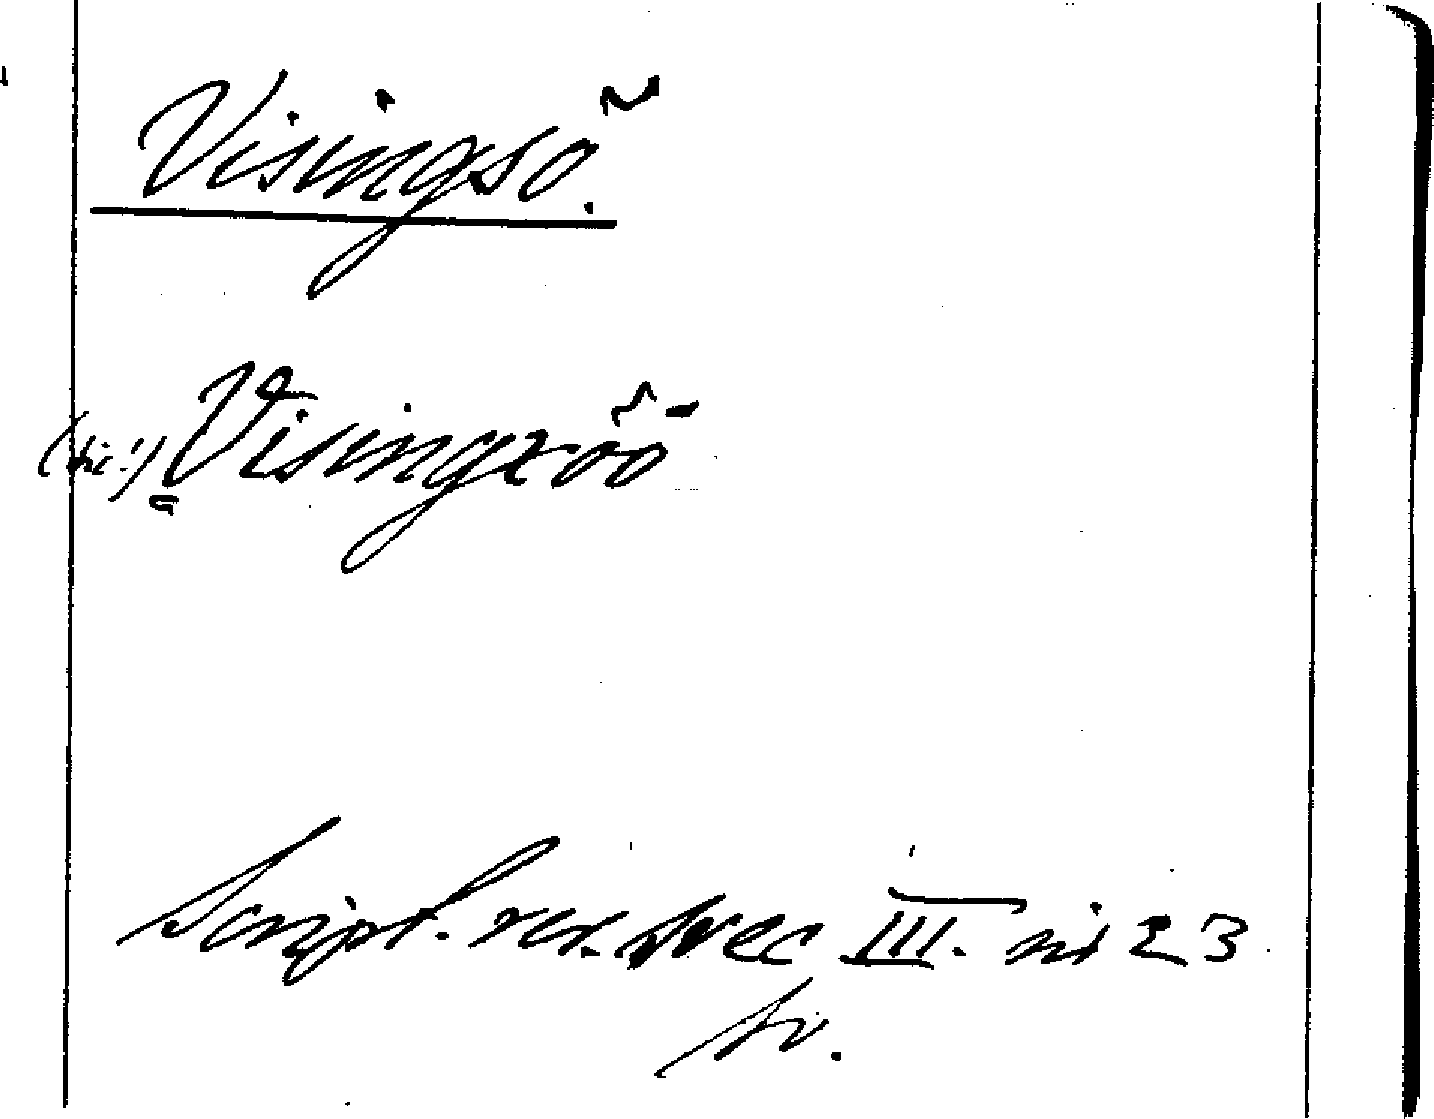 Visingsö.
(sic!) Visingxöö
Script. rer. svec III. nr 23
sv.